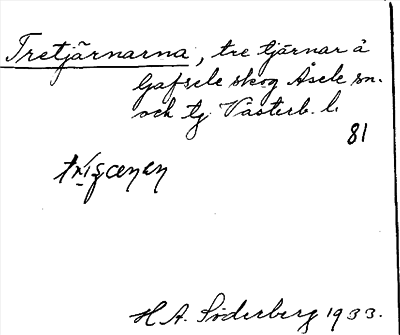 Tretjärnarna, tre tjärnar å
Gafsele skog Åsele sn.
och tg Västerb. l.
81
H A. Söderberg 1933.